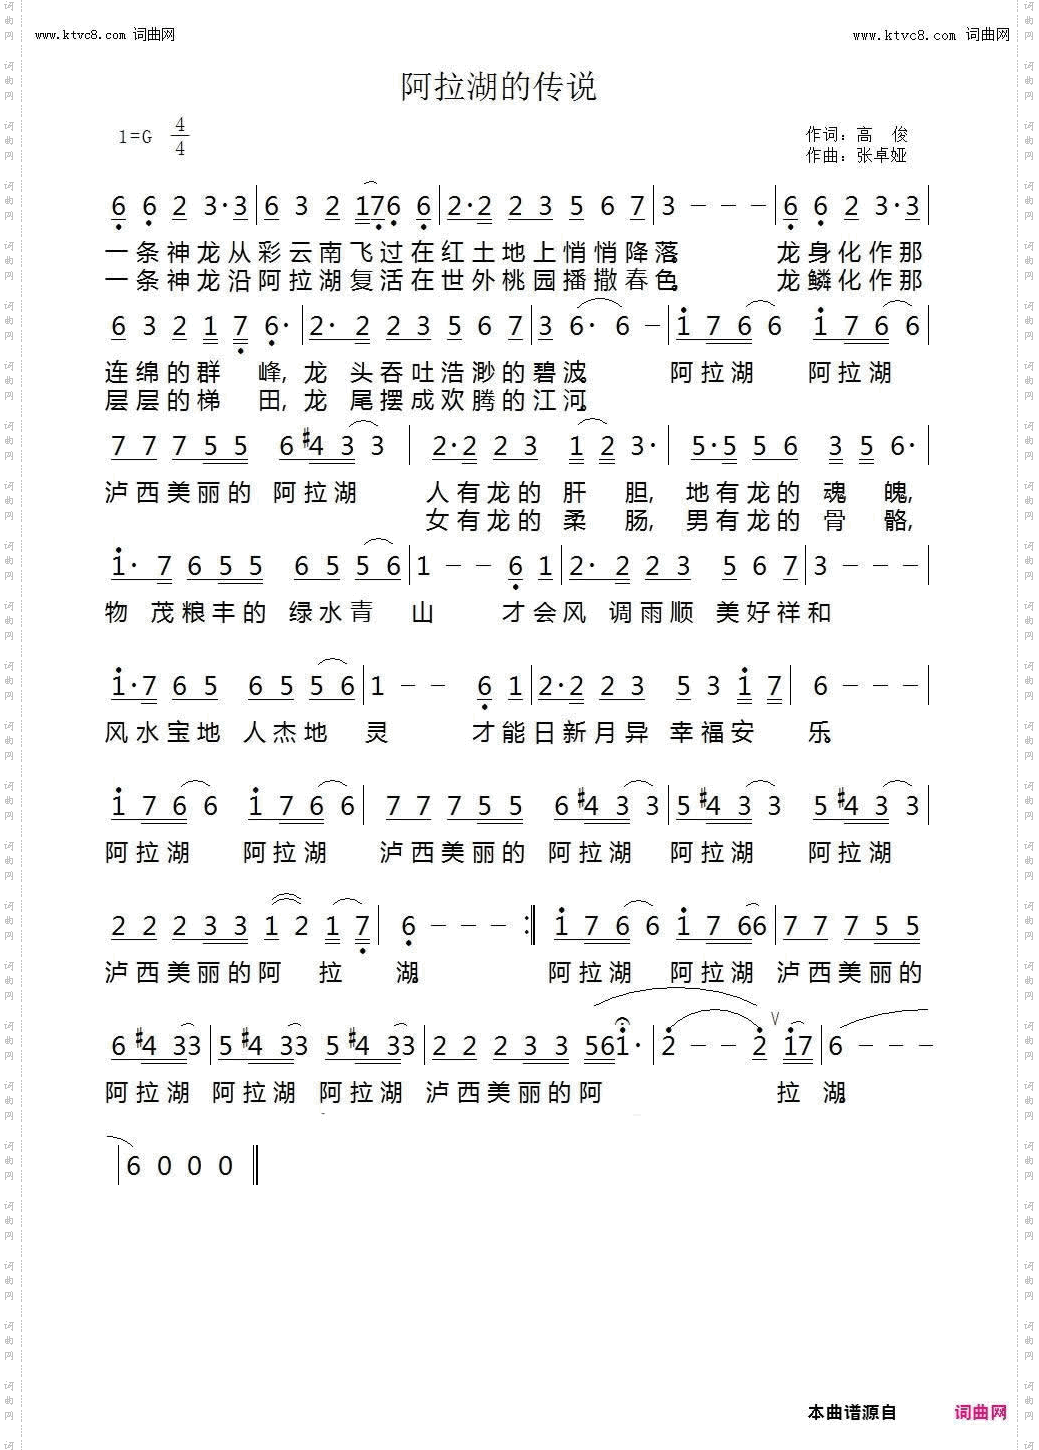 www.ktvc8.com 词曲网
www.ktvc8.com 词曲网
阿拉湖的传说
1=G 4/4
作词：高 俊
作曲：张卓娅
6 6 2 3·3 | 6 3 2 176 6 | 2·2 2 3 5 6 7 | 3 - - - | 6 6 2 3·3 |
一条神龙从彩云南飞过在红土地上悄悄降落。 龙身化作那
一条神龙沿阿拉湖复活在世外桃园播撒春色。 龙鳞化作那
6 3 2 1 7 6· | 2· 2 2 3 5 6 7 | 3 6· 6 - | 1 7 6 6 1 7 6 6 |
连绵的群 峰, 龙 头吞吐浩渺的碧波。 阿拉湖 阿拉湖
层层的梯 田, 龙 尾摆成欢腾的江河。
7 7 7 5 5 6 #4 3 3 | 2·2 2 3 1 2 3· | 5·5 5 6 3 5 6· |
泸西美丽的 阿拉湖 人有龙的 肝 胆, 地有龙的 魂 魄,
女有龙的 柔 肠, 男有龙的 骨 骼,
1· 7 6 5 5 6 5 5 6 | 1 - - 6 1 | 2· 2 2 3 5 6 7 | 3 - - - |
物 茂粮丰的 绿水青 山 才会风 调雨顺 美好祥和
1·7 6 5 6 5 5 6 | 1 - - 6 1 | 2·2 2 3 5 3 1 7 | 6 - - - |
风水宝地 人杰地 灵 才能日新月异 幸福安 乐。
1 7 6 6 1 7 6 6 | 7 7 7 5 5 6 #4 3 3 | 5 #4 3 3 5 #4 3 3 |
阿拉湖 阿拉湖 泸西美丽的 阿拉湖 阿拉湖 阿拉湖
2 2 2 3 3 1 2 1 7 | 6 - - - :‖ 1 7 6 6 1 7 66 | 7 7 7 5 5
泸西美丽的阿 拉 湖。 阿拉湖 阿拉湖 泸西美丽的
6 #4 33 | 5 #4 33 5 #4 33 | 2 2 2 3 3 561· | 2 - - 2 V 17 | 6 - - -
阿拉湖 阿拉湖 阿拉湖 泸西美丽的阿 拉 湖。
| 6 0 0 0 ‖
本曲谱源自 词曲网